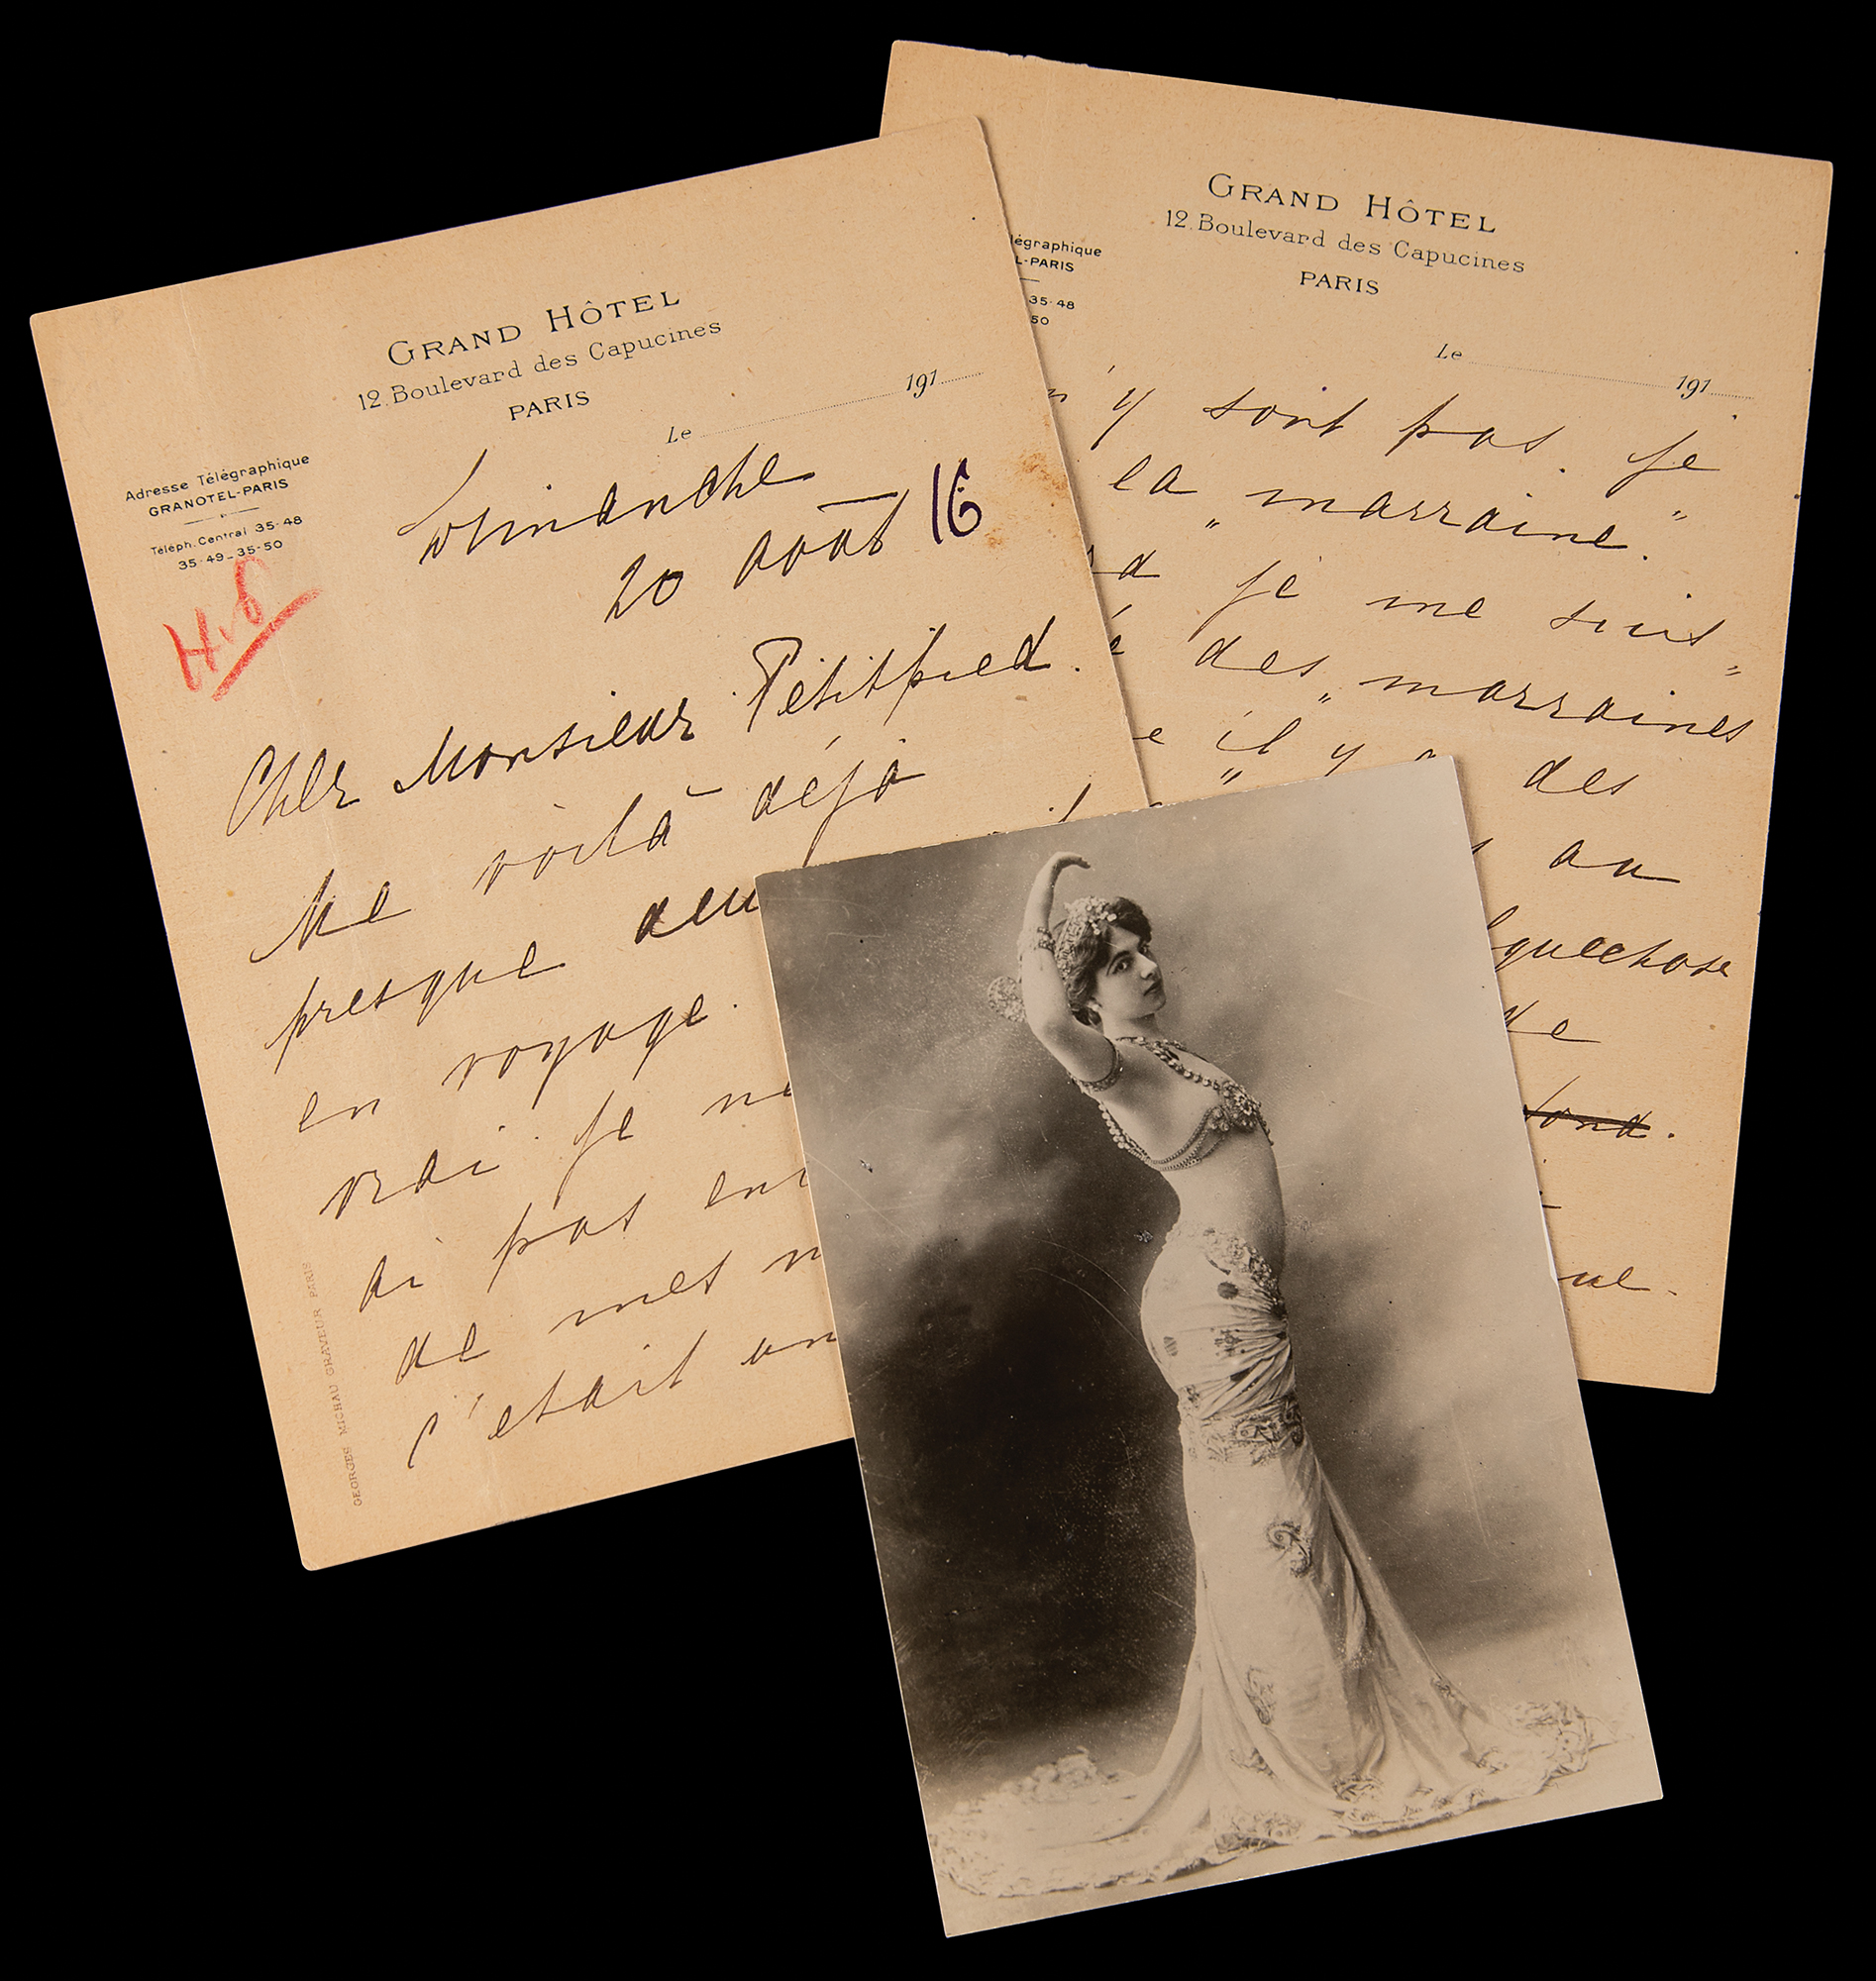 GRAND HÔTEL
12. Boulevard des Capucines
PARIS
Le 191
Adresse Télégraphique
GRANOTEL-PARIS
Téléph. Central 35-48
35-49_35-50
Dimanche
20 août 16
Cher Monsieur Petitpied.
Me voilà déjà
presque
en voyage.
vrai je
ai pas
de mes
c'etait
GEORGES MICHAU GRAVEUR PARIS
GRAND HÔTEL
12. Boulevard des Capucines
PARIS
légraphique
L-PARIS
35-48
50
Le 191
n'y sont pas. je
la "marraine."
je me suis
des "marraines"
il y a des
au
quechose
de